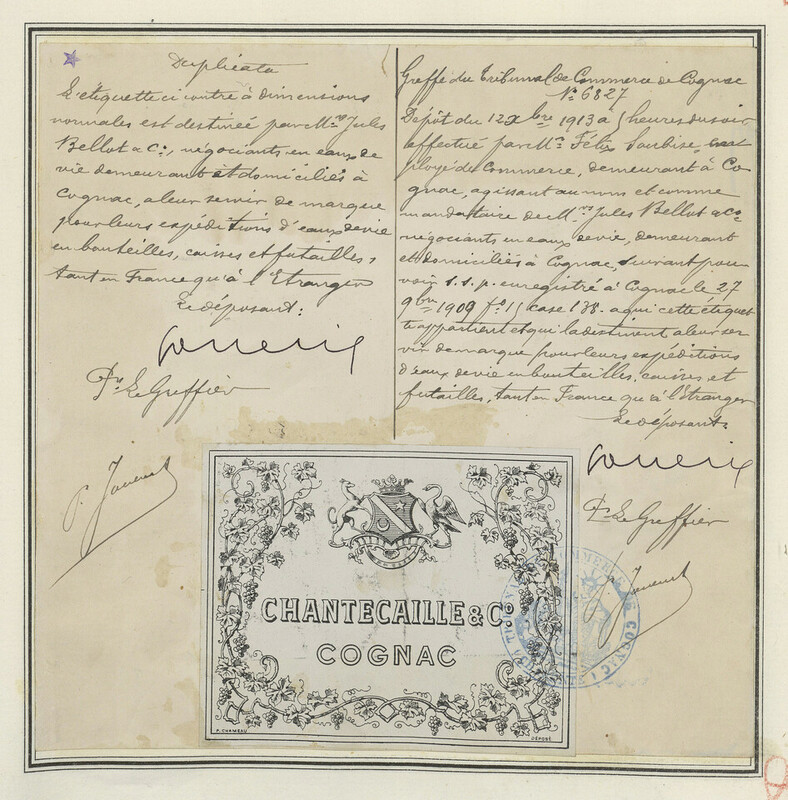 Duplicata
L'étiquette ci contre à dimensions
normales est destinée par Mrs Jules
Bellot & Cie, négociants en eaux de
vie demeurant et domiciliés à
Cognac, a leur servir de marque
pour leurs expéditions d'eaux de vie
en bouteilles, caisses et futailles,
tant en France qu'à l'Etranger
Le déposant:
Pr Le Greffier
Greffe du Tribunal de Commerce de Cognac
No 6827
Dépôt du 12 Xbre 1913 a 5 heures du soir
effectué par Mr Félix Soubise, em
ployé de Commerce, demeurant à Co
gnac, agissant au nom et comme
mandataire de Mrs Jules Bellot & Co
négociants en eaux de vie, demeurant
et domiciliés à Cognac, suivant pou
voir s.s.p. enregistré à Cognac le 27
9bre 1909 fo 15 case 138. a qui cette étiquet
te appartient et qui la destinent a leur ser
vir de marque pour leurs expéditions
d'eaux de vie en bouteilles, caisses et
futailles, tant en France qu'à l'Etranger
Le déposant.
Pr Le Greffier
CHANTECAILLE & Co
COGNAC
P. CHAMEAU
DÉPOSÉ